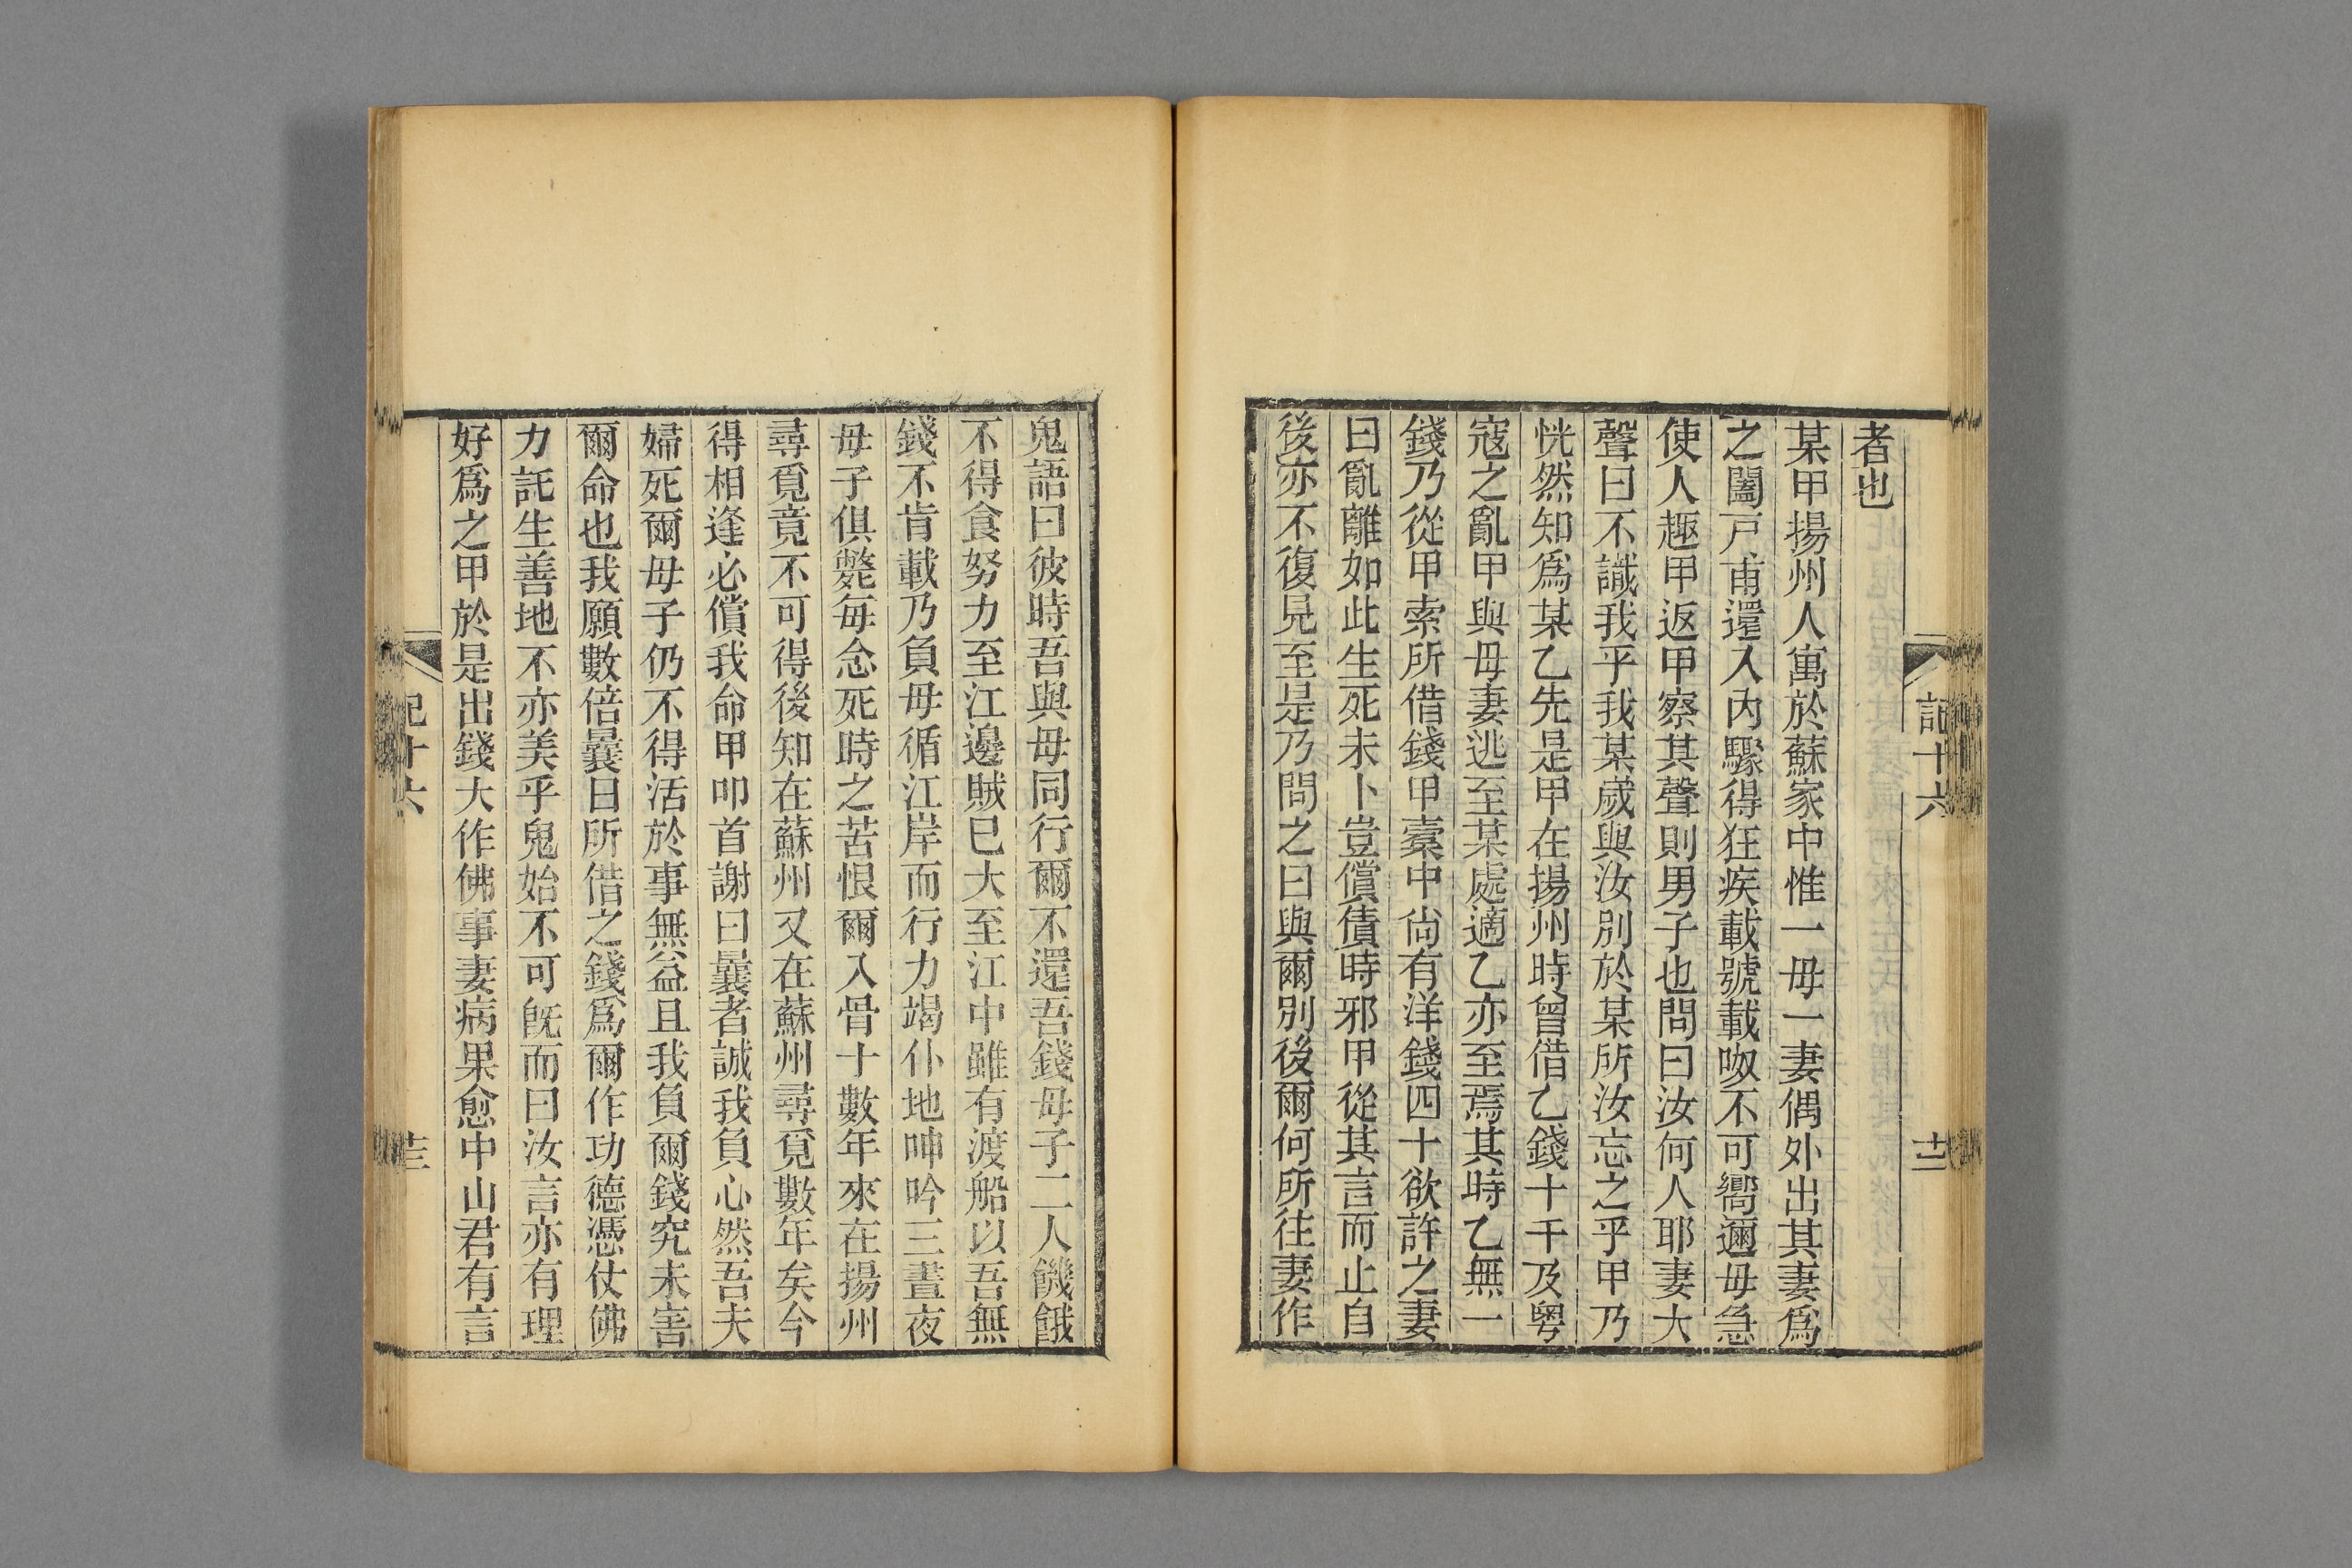 記十六
十二
者也
某甲揚州人寓於蘇家中惟一母一妻偶外出其妻爲
之闔戸甫還入內驟得狂疾載號載呶不可嚮邇母急
使人趣甲返甲察其聲則男子也問曰汝何人耶妻大
聲曰不識我乎我某歲與汝別於某所汝忘之乎甲乃
恍然知爲某乙先是甲在揚州時曾借乙錢十千及粤
寇之亂甲與母妻逃至某處適乙亦至焉其時乙無一
錢乃從甲索所借錢甲橐中尙有洋錢四十欲許之妻
曰亂離如此生死未卜豈償債時邪甲從其言而止自
後亦不復見至是乃問之曰與爾別後爾何所往妻作
鬼語曰彼時吾與母同行爾不還吾錢母子二人饑餓
不得食努力至江邊賊已大至江中雖有渡船以吾無
錢不肯載乃負母循江岸而行力竭仆地呻吟三晝夜
母子俱斃每念死時之苦恨爾入骨十數年來在揚州
尋覓竟不可得後知在蘇州又在蘇州尋覓數年矣今
得相逢必償我命甲叩首謝曰曩者誠我負心然吾夫
婦死爾母子仍不得活於事無益且我負爾錢究未害
爾命也我願數倍曩日所借之錢爲爾作功德憑仗佛
力託生善地不亦美乎鬼始不可旣而曰汝言亦有理
好爲之甲於是出錢大作佛事妻病果愈中山君有言
記十六
十三